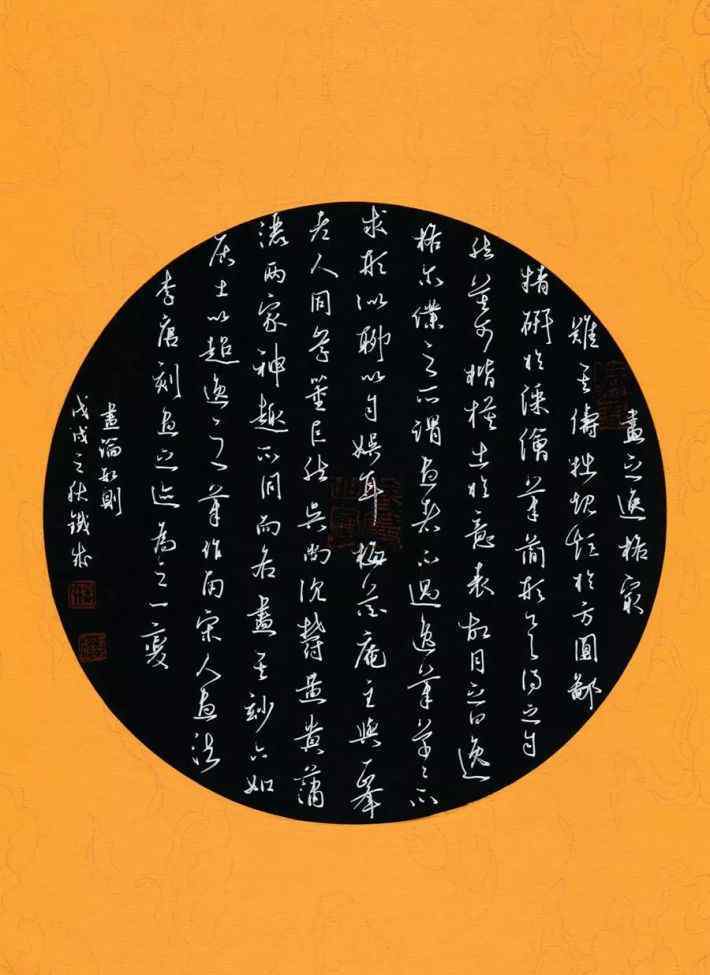 畫之逸格最
難其儔拙規矩於方圓鄙
精研於繪筆簡形具得之自
然莫可楷模出於意表故目之曰逸
格尔僕之所謂畫者不過逸筆草草不
求形似聊以自娛耳梅花庵主與一峯
老人同學董巨然吳尚沈鬱黃貴瀟
灑兩家神趣不同而各盡其妙六如
居士以超逸之筆作南宋人畫法
李唐刻畫之迹為之一變
畫論數則
戊戌之秋鐵